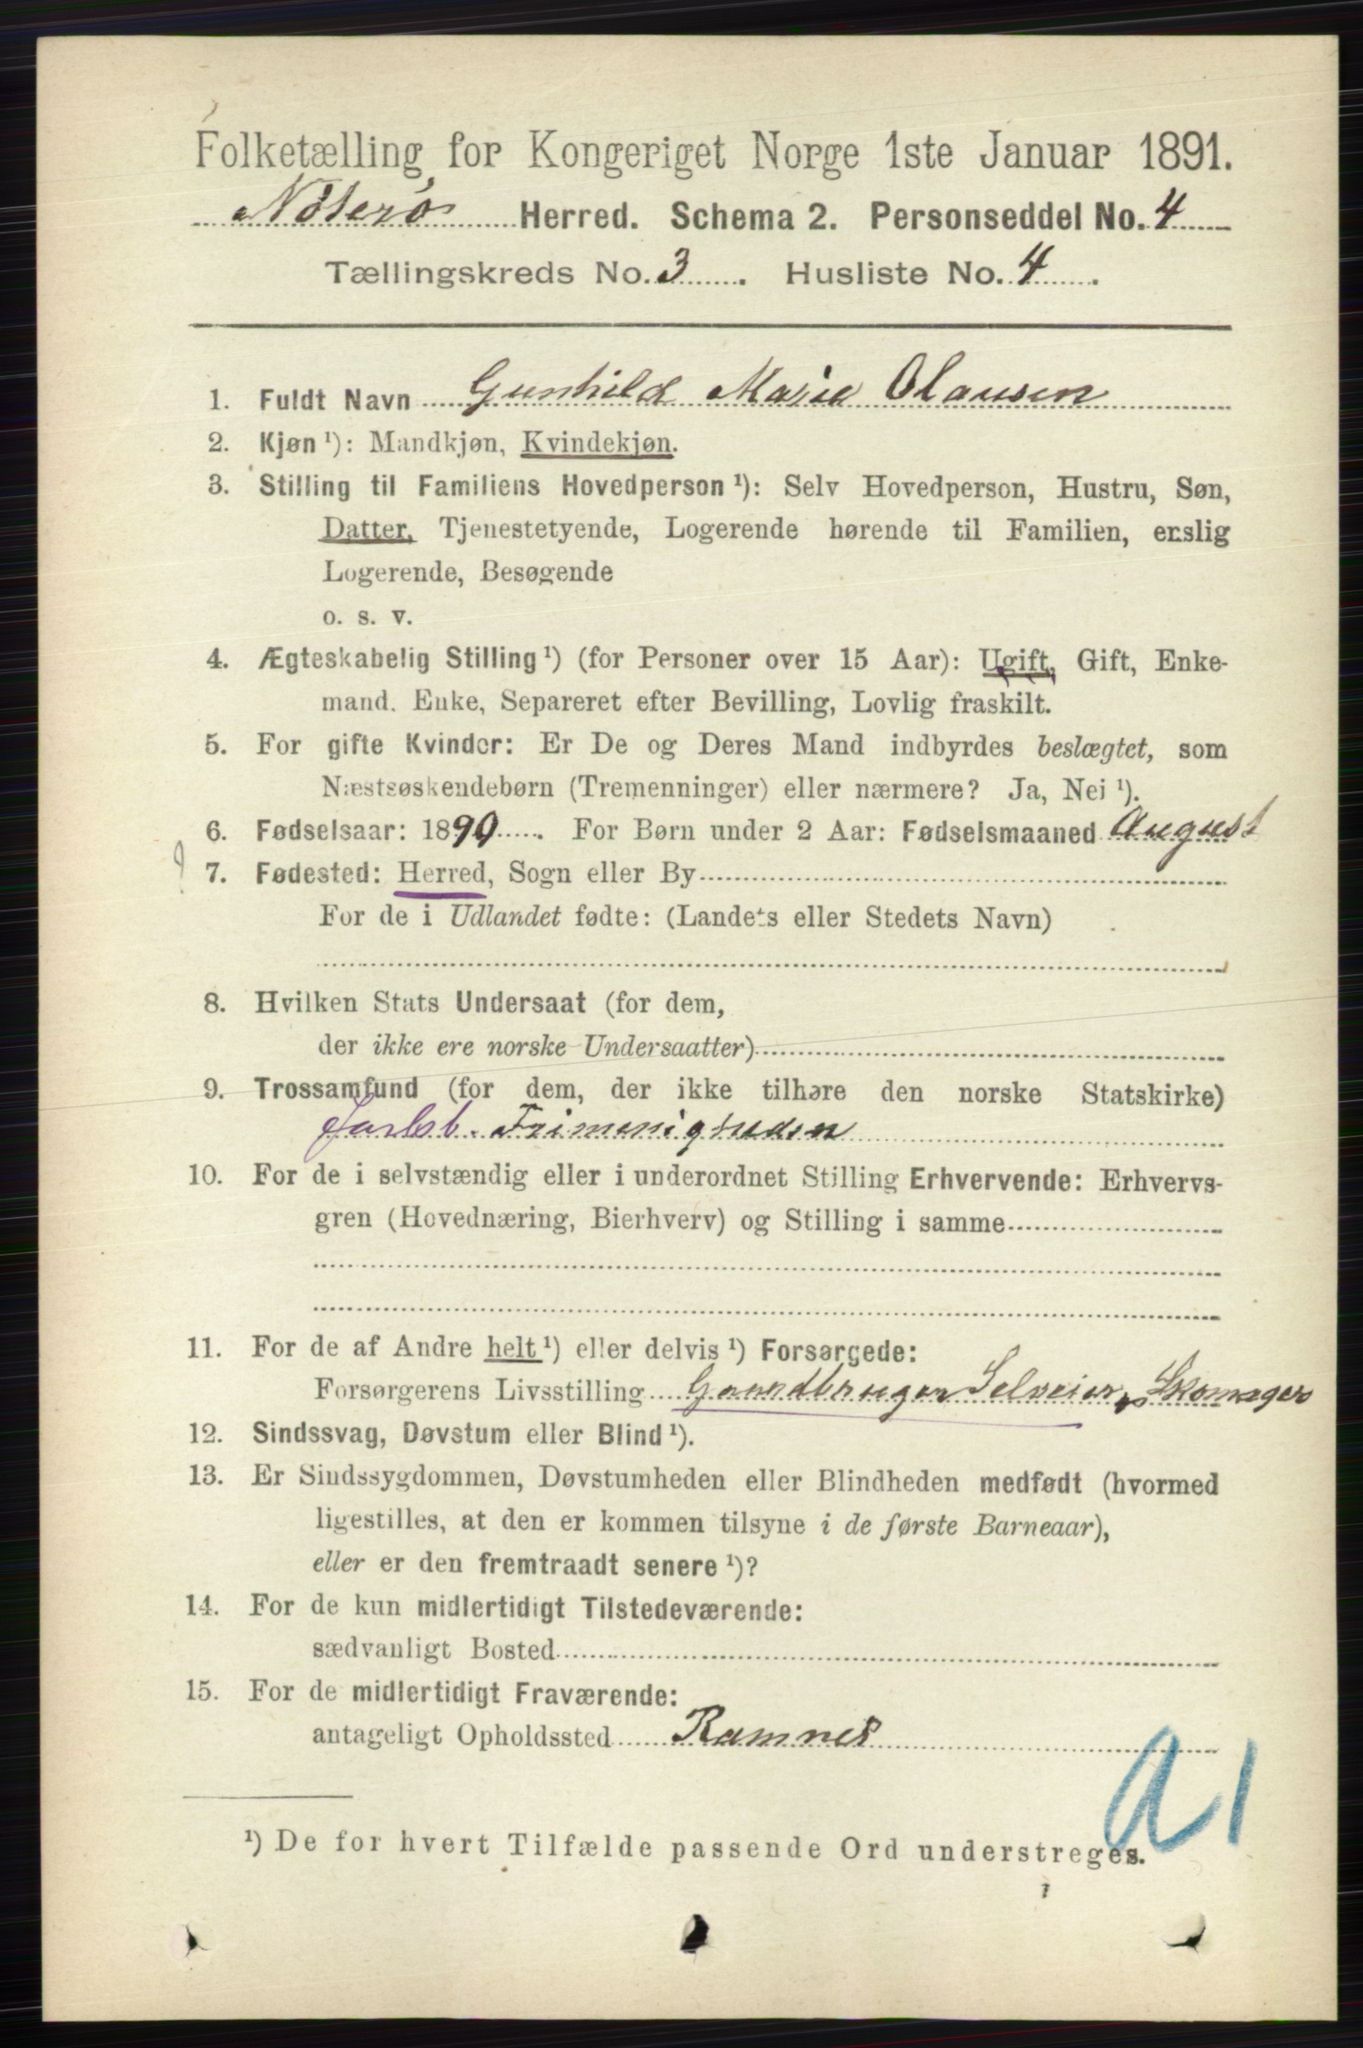 Folketælling for Kongeriget Norge 1ste Januar 1891.
Nøterø Herred. Schema 2. Personseddel No. 4
Tællingskreds No. 3. Husliste No. 4.
1. Fuldt Navn Gunhild Marie Olausen
2. Kjøn ¹): Mandkjøn, Kvindekjøn.
3. Stilling til Familiens Hovedperson ¹): Selv Hovedperson, Hustru, Søn,
Datter, Tjenestetyende, Logerende hørende til Familien, enslig
Logerende, Besøgende
o. s. v.
4. Ægteskabelig Stilling ¹) (for Personer over 15 Aar): Ugift, Gift, Enke-
mand, Enke, Separeret efter Bevilling, Lovlig fraskilt.
5. For gifte Kvinder: Er De og Deres Mand indbyrdes beslægtet, som
Næstsøskendebørn (Tremenninger) eller nærmere? Ja, Nei ¹).
6. Fødselsaar: 1890. For Børn under 2 Aar: Fødselsmaaned August
7. Fødested: Herred, Sogn eller By
For de i Udlandet fødte: (Landets eller Stedets Navn)
8. Hvilken Stats Undersaat (for dem,
der ikke ere norske Undersaatter)
9. Trossamfund (for dem, der ikke tilhøre den norske Statskirke)
Jarlsb. Frimenigheden
10. For de i selvstændig eller i underordnet Stilling Erhvervende: Erhvervs-
gren (Hovednæring, Bierhverv) og Stilling i samme
11. For de af Andre helt ¹) eller delvis ¹) Forsørgede:
Forsørgerens Livsstilling Gaardbruger Selveier, Skomager
12. Sindssvag, Døvstum eller Blind ¹).
13. Er Sindssygdommen, Døvstumheden eller Blindheden medfødt (hvormed
ligestilles, at den er kommen tilsyne i de første Barneaar),
eller er den fremtraadt senere ¹)?
14. For de kun midlertidigt Tilstedeværende:
sædvanligt Bosted
15. For de midlertidigt Fraværende:
antageligt Opholdssted Ramnes
a 1
¹) De for hvert Tilfælde passende Ord understreges.